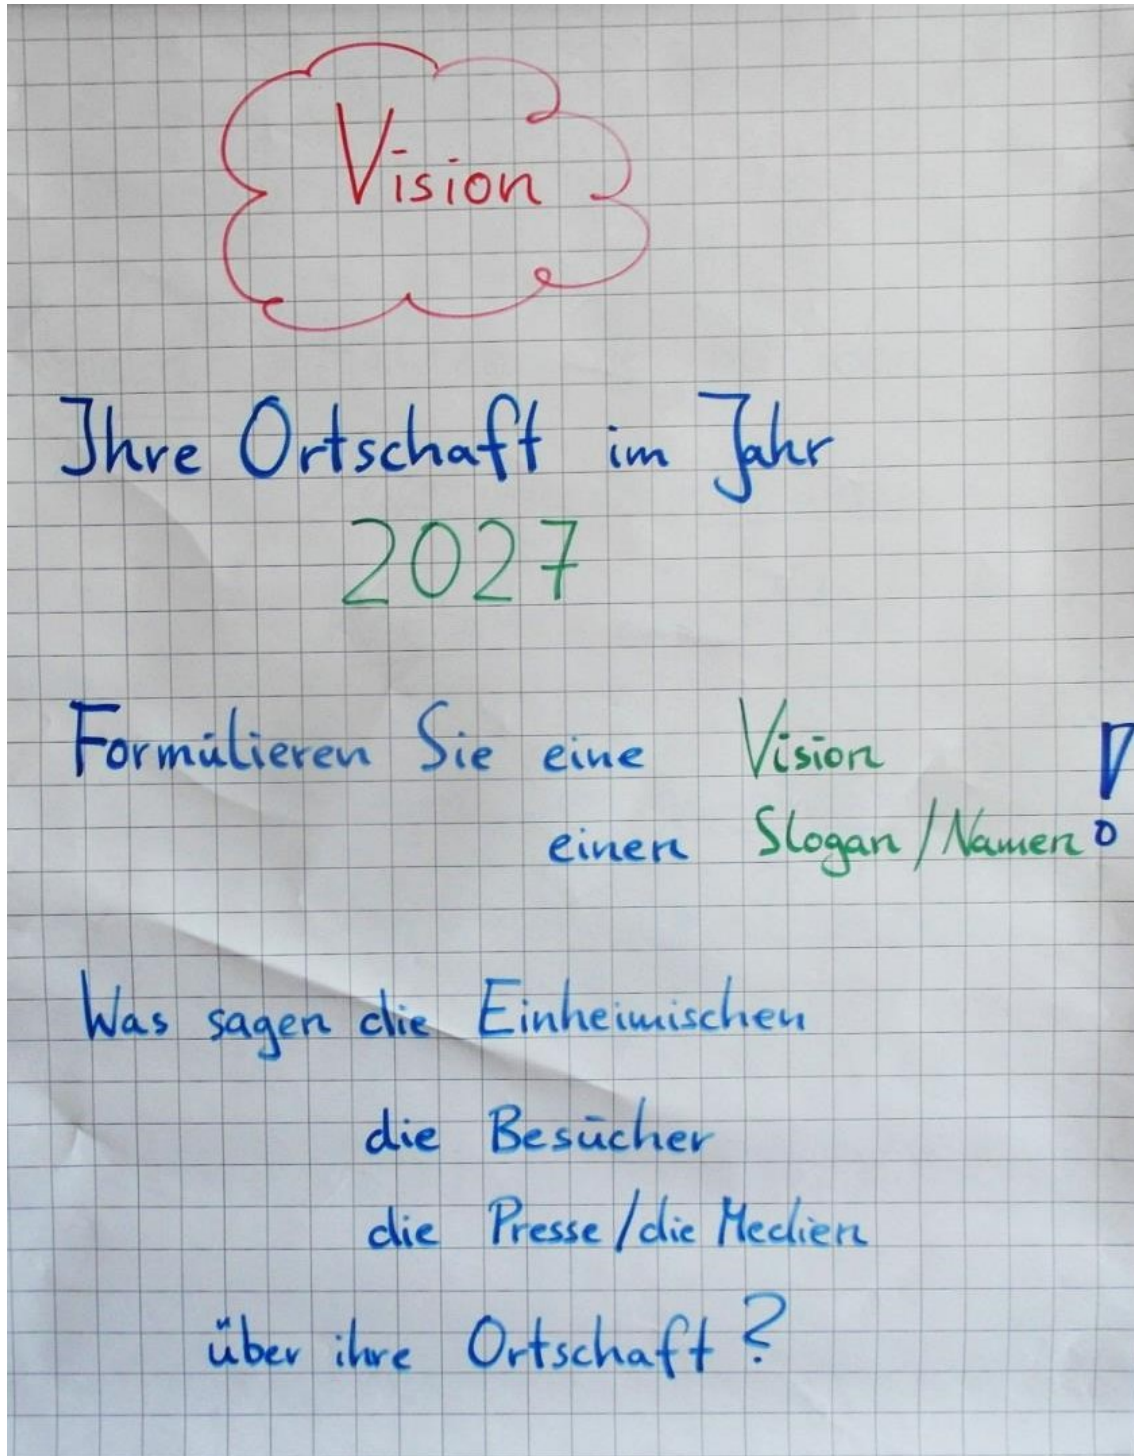 Vision
Ihre Ortschaft im Jahr
2027
Formulieren Sie eine Vision
einen Slogan/Namen!
Was sagen die Einheimischen
die Besucher
die Presse/die Medien
über ihre Ortschaft?